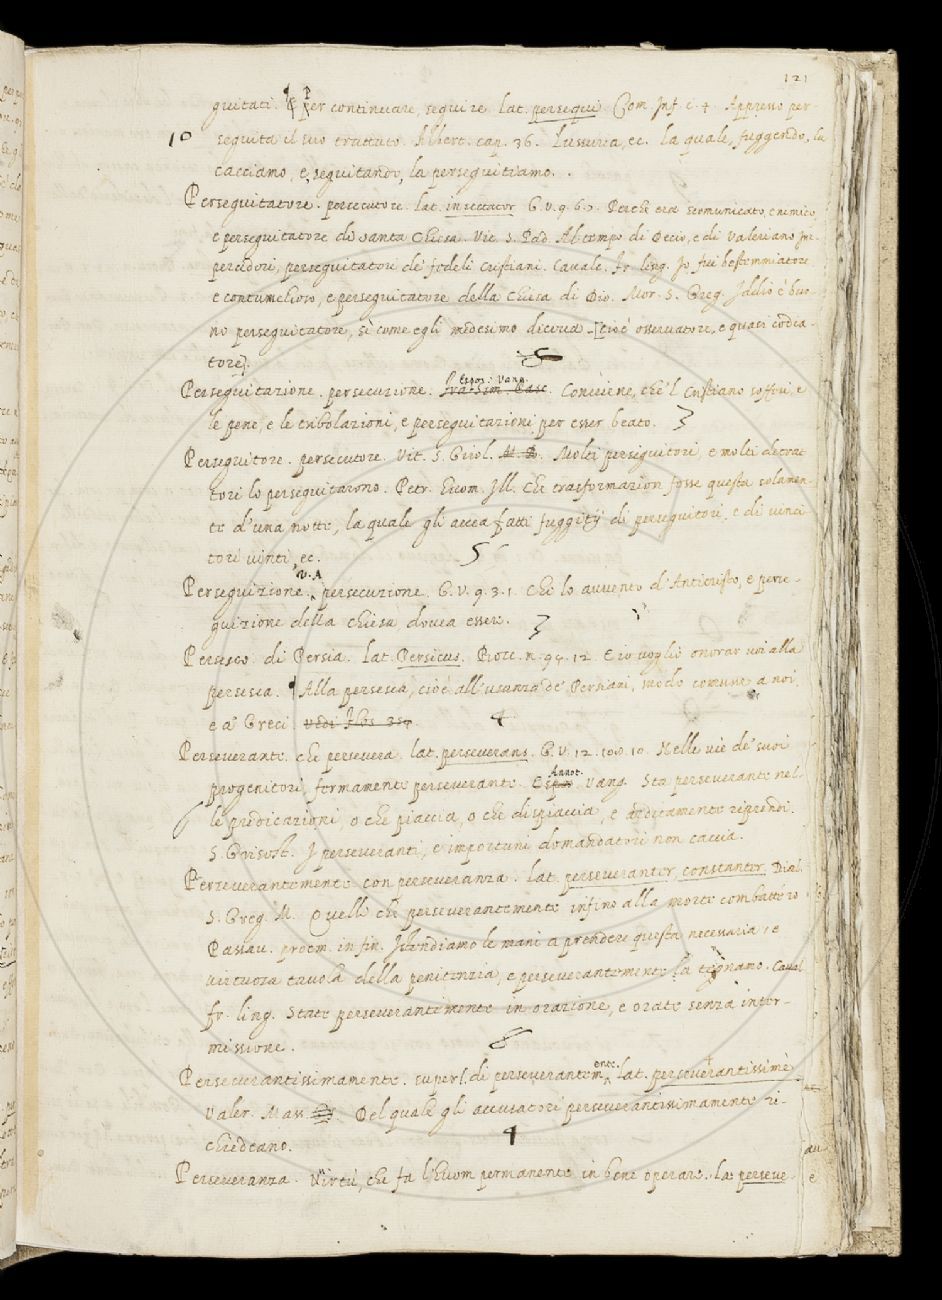 121
guitati. ¶ Per continuare, seguire lat. persequi Com. Inf. c. 4. Appresso per-
10 seguita il suo trattato. Albert. cap. 36. Lussuria, ec. la quale, fuggendo, la
cacciamo, e, seguitando, la perseguitiamo.
Perseguitatore. persecutore. lat. insectator G.V. 9. 6. 2. Perchè era scomunicato, e nemico,
e perseguitatore di santa Chiesa. Vit. S. Pad. Al tempo di Decio, e di Valeriano Im-
peradori, perseguitatori de' fedeli Cristiani. Cavalc. fr. ling. Io fui bestemmiatore
e contumelioso, e perseguitatore della Chiesa di Dio. Mor. S. Greg. Iddio è buo-
no perseguitatore, sì come egli medesimo diceva [cioè osservatore, e quasi codia-
tore].
Perseguitazione. persecuzione. Espos. Vang. Conviene, che'l Cristiano soffri, e
le pene, e le tribolazioni, e perseguitazioni per esser beato. 3
Perseguitore. persecutore. Vit. S. Girol. Molti perseguitori, e molti detrat-
tori lo perseguitarono. Petr. Huom. Ill. Che trasformazion fosse questa solamen-
te d'una notte, la quale gli avea fatti fuggity di perseguitori, e di vinci-
tori vinti, ec. 5
Perseguizione. V.A. persecuzione. G.V. 9. 3. 1. Che lo avvento d'Anticristo, e perse-
guizione della Chiesa dovea esser. 3
Persesco. di Persia. lat. Persicus. Bocc. n. 94. 12. E io voglio onorar voi alla
persesca. ¶ Alla persesca, cioè all'usanza de' Persiani, modo comune a noi
e a' Greci vedi Fbs. 354. 4
Perseverante. che persevera lat. perseverans. G.V. 12. 108. 10. Nelle vie de' suoi
progenitori, fermamente perseverante. Annot. Vang. Sta perseverante nel-
le predicazioni, o che piaccia, o che dispiaccia, e arditamente riprendi.
S. Grisost. I perseveranti, e importuni domandatori non caccia.
Perseverantemente con perseveranza. lat. perseveranter, constanter. Dial.
S. Greg. M. Quello che perseverantemente infino alla morte combatterò
Passav. proem. in fin. Istendiamo le mani a prendere questa necessaria, e
virtuosa tavola della penitenzia, e perseverantemente la tegnamo. Caval.
fr. ling. State perseverantemente in orazione, e orate senza inter-
missione. 8
Perseverantissimamente. superl. di perseverantemente. lat. perseverantissimè
Valer. Mass. Del quale gli accusatori perseverantissimamente ri-
chiedeano. 4
Perseveranza. Virtù, che fa l'huom permanente in bene operare. lat. perseve-